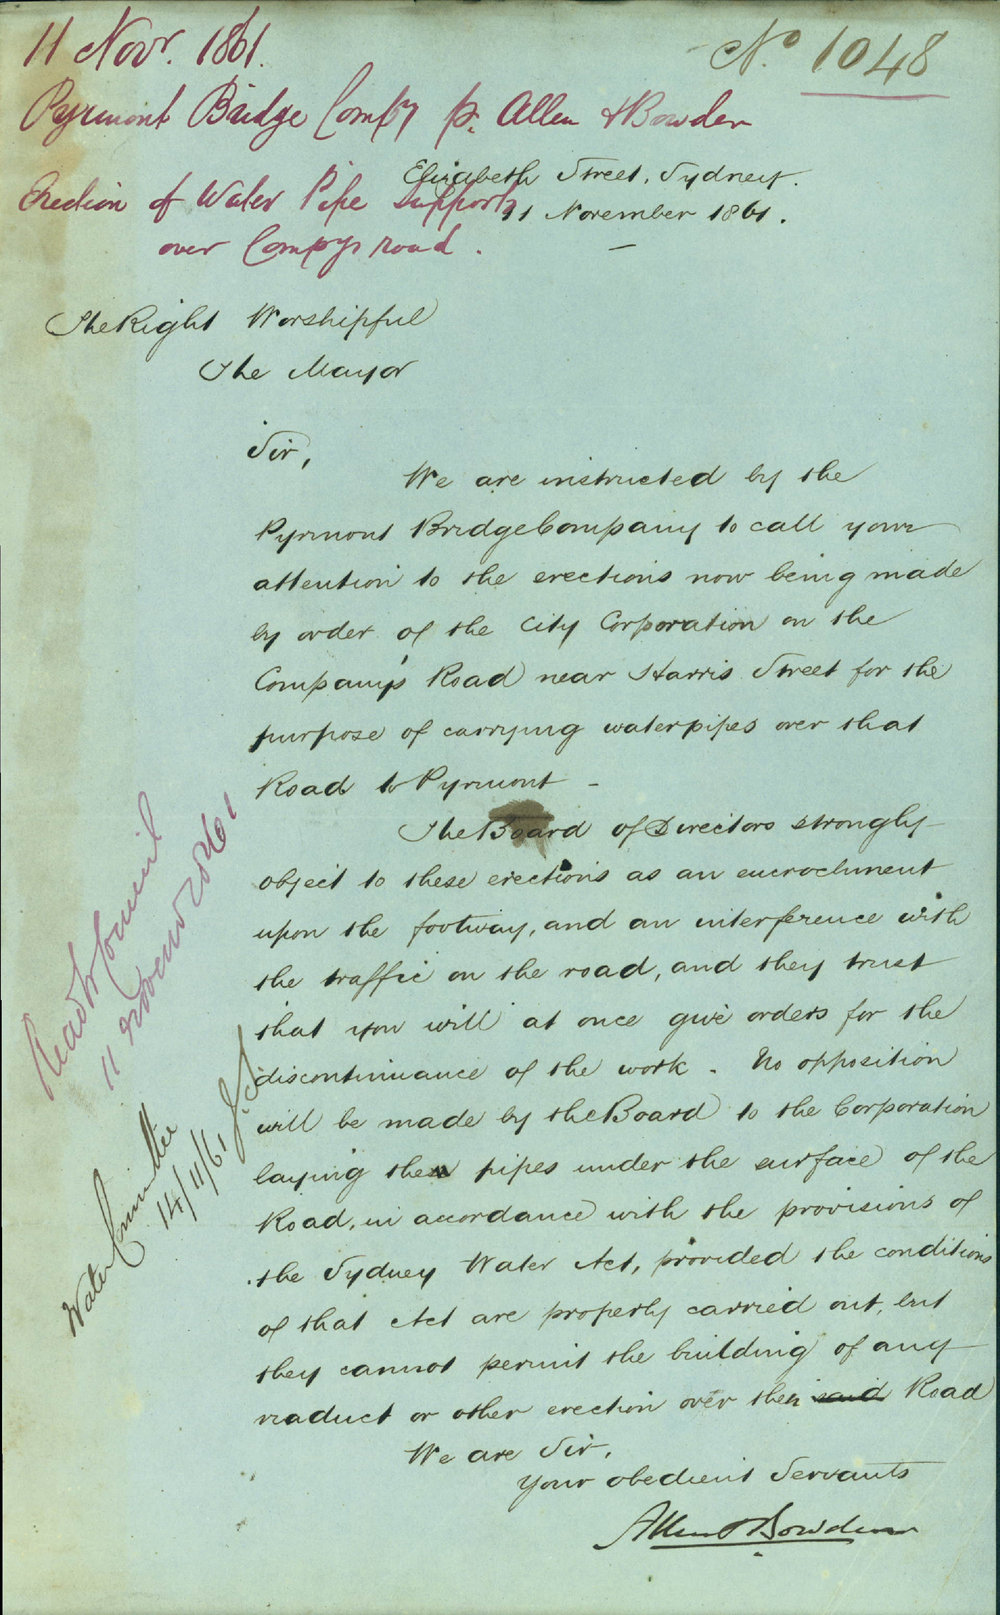 11 Novr. 1861.
No. 1048
Pyrmont Bridge Compy p. Allen & Bowden
Erection of Water Pipe Supports
over Compys road.
Elizabeth Street, Sydney.
11 November 1861.
The Right Worshipful
The Mayor
Sir,
We are instructed by the
Pyrmont Bridge Company to call your
attention to the erections now being made
by order of the City Corporation on the
Company's Road near Harris Street for the
purpose of carrying waterpipes over that
Road to Pyrmont –
The Board of Directors strongly
object to these erections as an encroachment
upon the footway, and an interference with
the traffic on the road, and they trust
that you will at once give orders for the
discontinuance of the work. No opposition
will be made by the Board to the Corporation
laying the pipes under the surface of the
Road, in accordance with the provisions of
the Sydney Water Act, provided the conditions
of that Act are properly carried out, but
they cannot permit the building of any
viaduct or other erection over their said Road
We are Sir,
Your obedient Servants
Allen & Bowden
Read in Council
11 November 1861
Water Committee
14/11/61